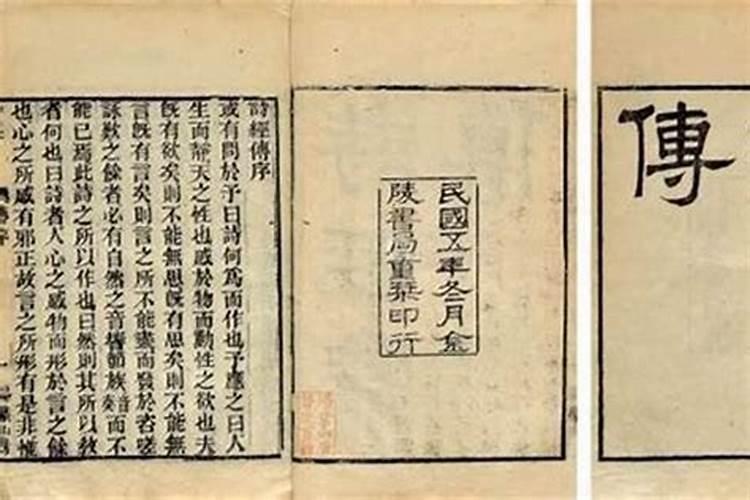 傳
民國五年冬月金
陵書局重栞印行
詩經傳序
或有問於予曰詩何爲而作也予應之曰人
生而靜天之性也感於物而動性之欲也夫
既有欲矣則不能無思既有思矣則不能無
言既有言矣則言之所不能盡而發於咨嗟
詠歎之餘者必有自然之音響節族音奏而不
能已焉此詩之所以作也曰然則其所以敎
者何也曰詩者人心之感物而形於言之餘
也心之所感有邪正故言之所形有是非惟